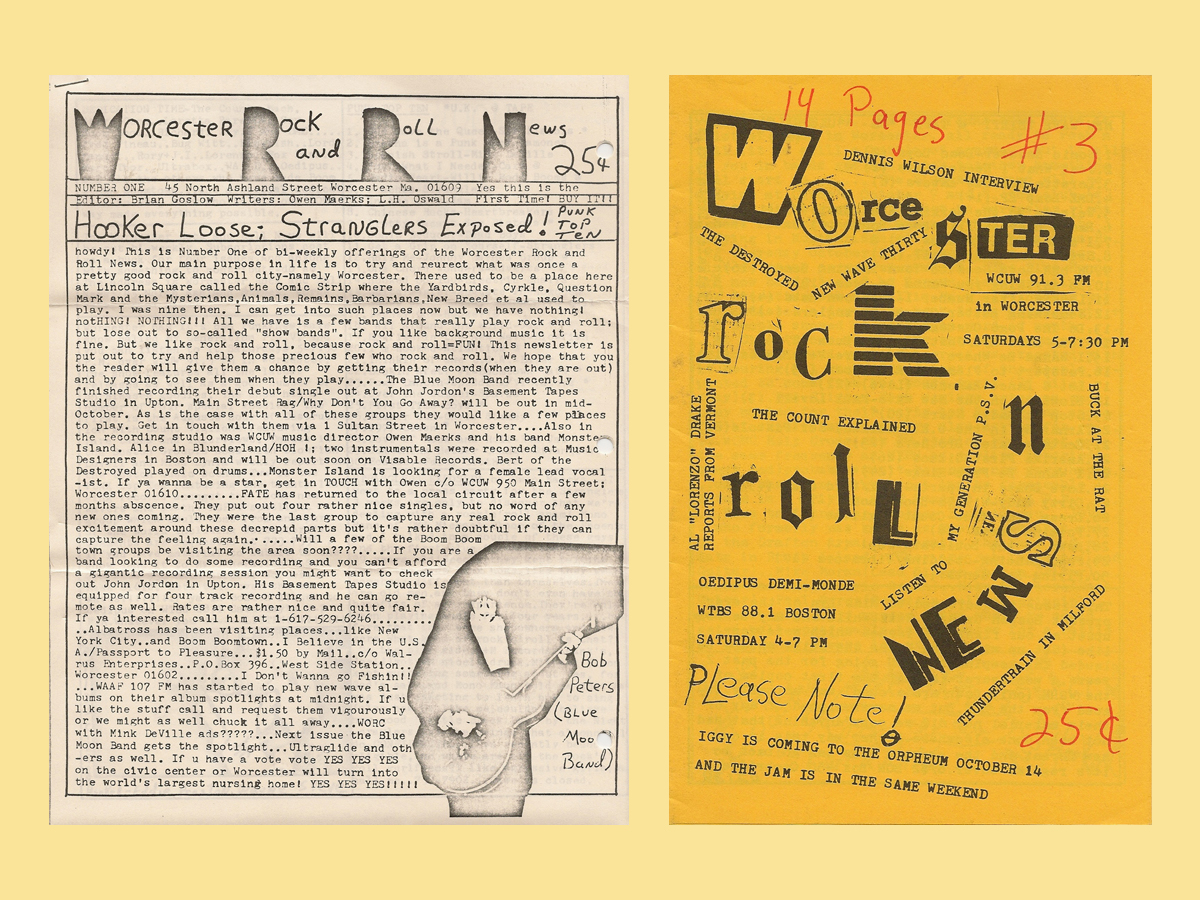 Worcester Rock and Roll News
25¢
NUMBER ONE 45 North Ashland Street Worcester Ma. 01609 Yes this is the
Editor: Brian Goslow Writers: Owen Maerks; L.H. Oswald First Time! BUY IT!!
Hooker Loose; Stranglers Exposed! PUNK TOP TEN
howdy! This is Number One of bi-weekly offerings of the Worcester Rock and
Roll News. Our main purpose in life is to try and reurect what was once a
pretty good rock and roll city-namely Worcester. There used to be a place here
at Lincoln Square called the Comic Strip where the Yardbirds, Cyrkle, Question
Mark and the Mysterians,Animals,Remains,Barbarians,New Breed et al used to
play. I was nine then. I can get into such places now but we have nothing!
nothING! NOTHING!!! All we have is a few bands that really play rock and roll;
but lose out to so-called "show bands". If you like background music it is
fine. But we like rock and roll, because rock and roll=FUN! This newsletter is
put out to try and help those precious few who rock and roll. We hope that you
the reader will give them a chance by getting their records(when they are out)
and by going to see them when they play......The Blue Moon Band recently
finished recording their debut single out at John Jordon's Basement Tapes
Studio in Upton. Main Street Rag/Why Don't You Go Away? will be out in mid-
October. As is the case with all of these groups they would like a few places
to play. Get in touch with them via 1 Sultan Street in Worcester....Also in
the recording studio was WCUW music director Owen Maerks and his band Monste
Island. Alice in Blunderland/HOH !; two instrumentals were recorded at Music
Designers in Boston and will be out soon on Visable Records. Bert of the
Destroyed played on drums...Monster Island is looking for a female lead vocal
-ist. If ya wanna be a star, get in TOUCH with Owen c/o WCUW 950 Main Street;
Worcester 01610.........FATE has returned to the local circuit after a few
months abscence. They put out four rather nice singles, but no word of any
new ones coming. They were the last group to capture any real rock and roll
excitement around these decrepid parts but it's rather doubtful if they can
capture the feeling again.......Will a few of the Boom Boom
town groups be visiting the area soon????.....If you are a
band looking to do some recording and you can't afford
a gigantic recording session you might want to check
out John Jordon in Upton. His Basement Tapes Studio is
equipped for four track recording and he can go re-
mote as well. Rates are rather nice and quite fair.
If ya interested call him at 1-617-529-6246.........
..Albatross has been visiting places...like New
York City..and Boom Boomtown..I Believe in the U.S.
A./Passport to Pleasure...$1.50 by Mail..c/o Wal-
rus Enterprises..P.O.Box 396..West Side Station..
Worcester 01602.........I Don't Wanna go Fishin!!
...WAAF 107 FM has started to play new wave al-
bums on their album spotlights at midnight. If u
like the stuff call and request them vigourously
or we might as well chuck it all away....WORC
with Mink DeVille ads?????...Next issue the Blue
Moon Band gets the spotlight...Ultraglide and oth
-ers as well. If u have a vote vote YES YES YES
on the civic center or Worcester will turn into
the world's largest nursing home! YES YES YES!!!!!
Bob
Peters
(Blue
Moon
Band)
14 Pages
#3
Worce
STER
DENNIS WILSON INTERVIEW
THE DESTROYED
NEW WAVE THIRTY
WCUW 91.3 FM
in WORCESTER
SATURDAYS 5-7:30 PM
rock
n
roll
NEWS
THE COUNT EXPLAINED
AL "LORENZO" DRAKE
REPORTS FROM VERMONT
MY GENERATION P.S.V.
BUCK AT THE RAT
NE.
LISTEN TO
OEDIPUS DEMI-MONDE
WTBS 88.1 BOSTON
SATURDAY 4-7 PM
THUNDERTRAIN IN MILFORD
PLease Note!
25¢
IGGY IS COMING TO THE ORPHEUM OCTOBER 14
AND THE JAM IS IN THE SAME WEEKEND